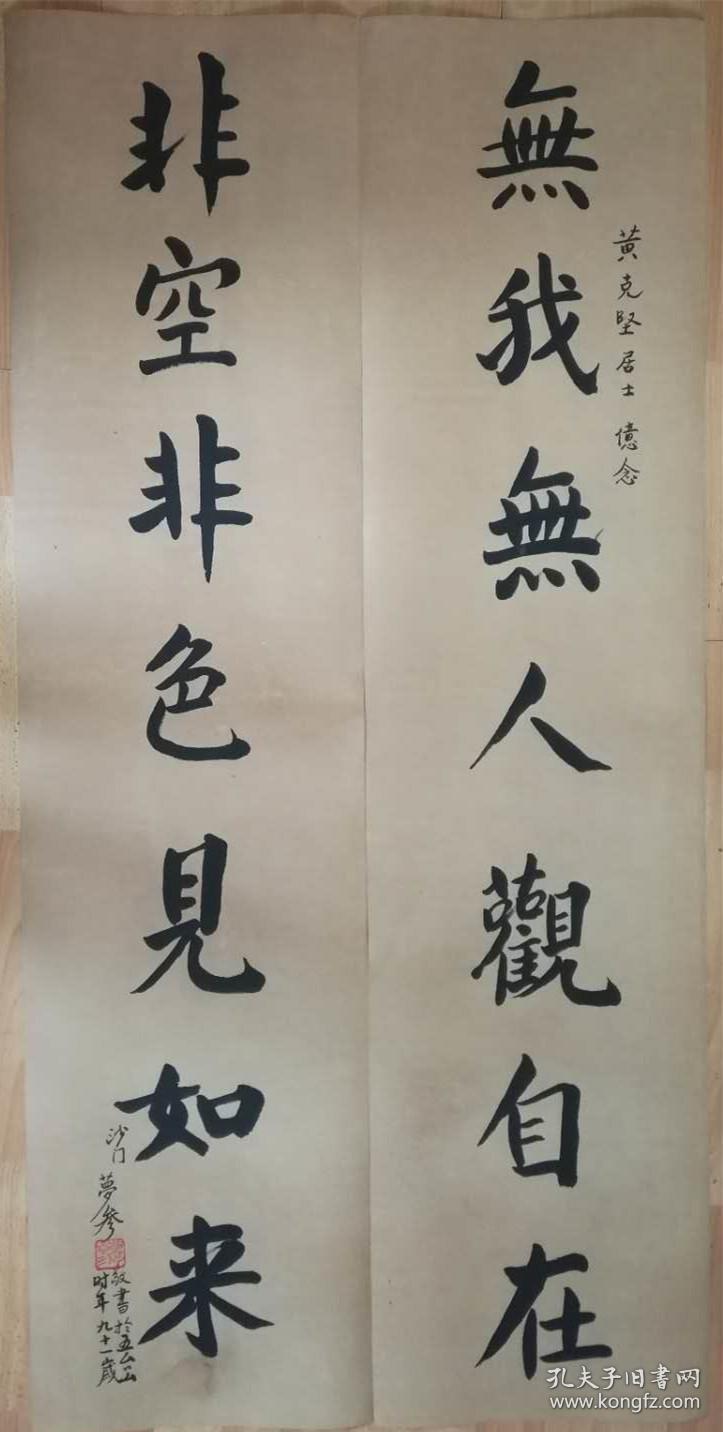 黄克坚居士 億念
無我無人觀自在
非空非色見如来
沙门 夢參
敬書於五台山
时年九十一歲
孔夫子旧書网
www.kongfz.com